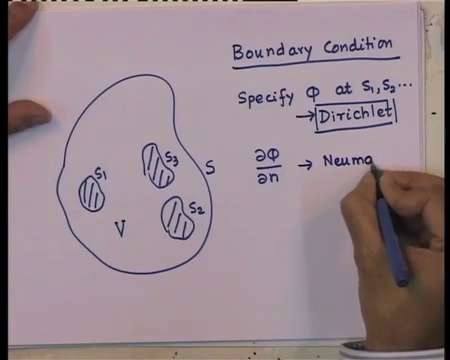 Boundary Condition
Specify Φ at S1, S2 ...
→ Dirichlet
∂Φ/∂n → Neuma
S1
S3
S
S2
V